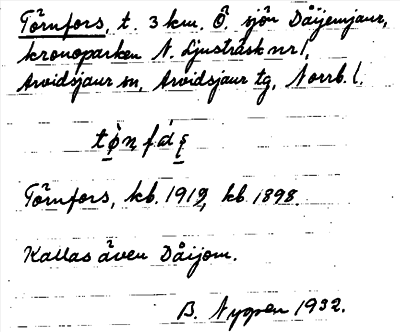 Törnfors, t. 3 km. Ö. sjön Dåijemjaur,
kronoparken N. Ljusträsk nr 1,
Arvidsjaur sn, Arvidsjaur tg, Norrb. l.
tò̱ṇfáş̱
Törnfors, kb. 1919, kb. 1898.
Kallas även Dåijom.
B. Nygren 1932.